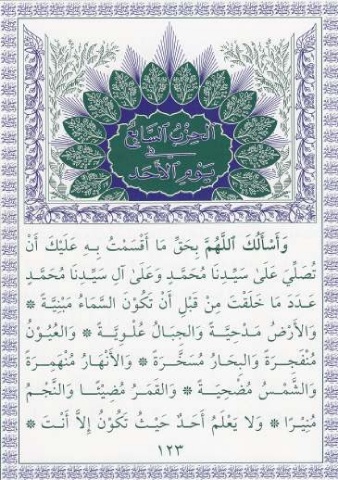 الحزب السابع
في
يوم الأحد
وَأَسْأَلُكَ اللَّهُمَّ بِحَقِّ مَا أَقْسَمْتُ بِهِ عَلَيْكَ أَنْ
تُصَلِّيَ عَلَىٰ سَيِّدِنَا مُحَمَّدٍ وَعَلَىٰ آلِ سَيِّدِنَا مُحَمَّدٍ
عَدَدَ مَا خَلَقْتَ مِنْ قَبْلِ أَنْ تَكُونَ السَّمَاءُ مَبْنِيَّةً ❊
وَالأَرْضُ مَدْحِيَّةً وَالجِبَالُ عُلْوِيَّةً ❊ وَالعُيُونُ
مُنْفَجِرَةً وَالبِحَارُ مُسَخَّرَةً ❊ وَالأَنْهَارُ مُنْهَمِرَةً
وَالشَّمْسُ مُضْحِيَةً ❊ وَالقَمَرُ مُضِيئًا وَالنَّجْمُ
مُنِيرًا ❊ وَلَا يَعْلَمُ أَحَدٌ حَيْثُ تَكُونُ إِلَّا أَنْتَ ❊
١٢٣